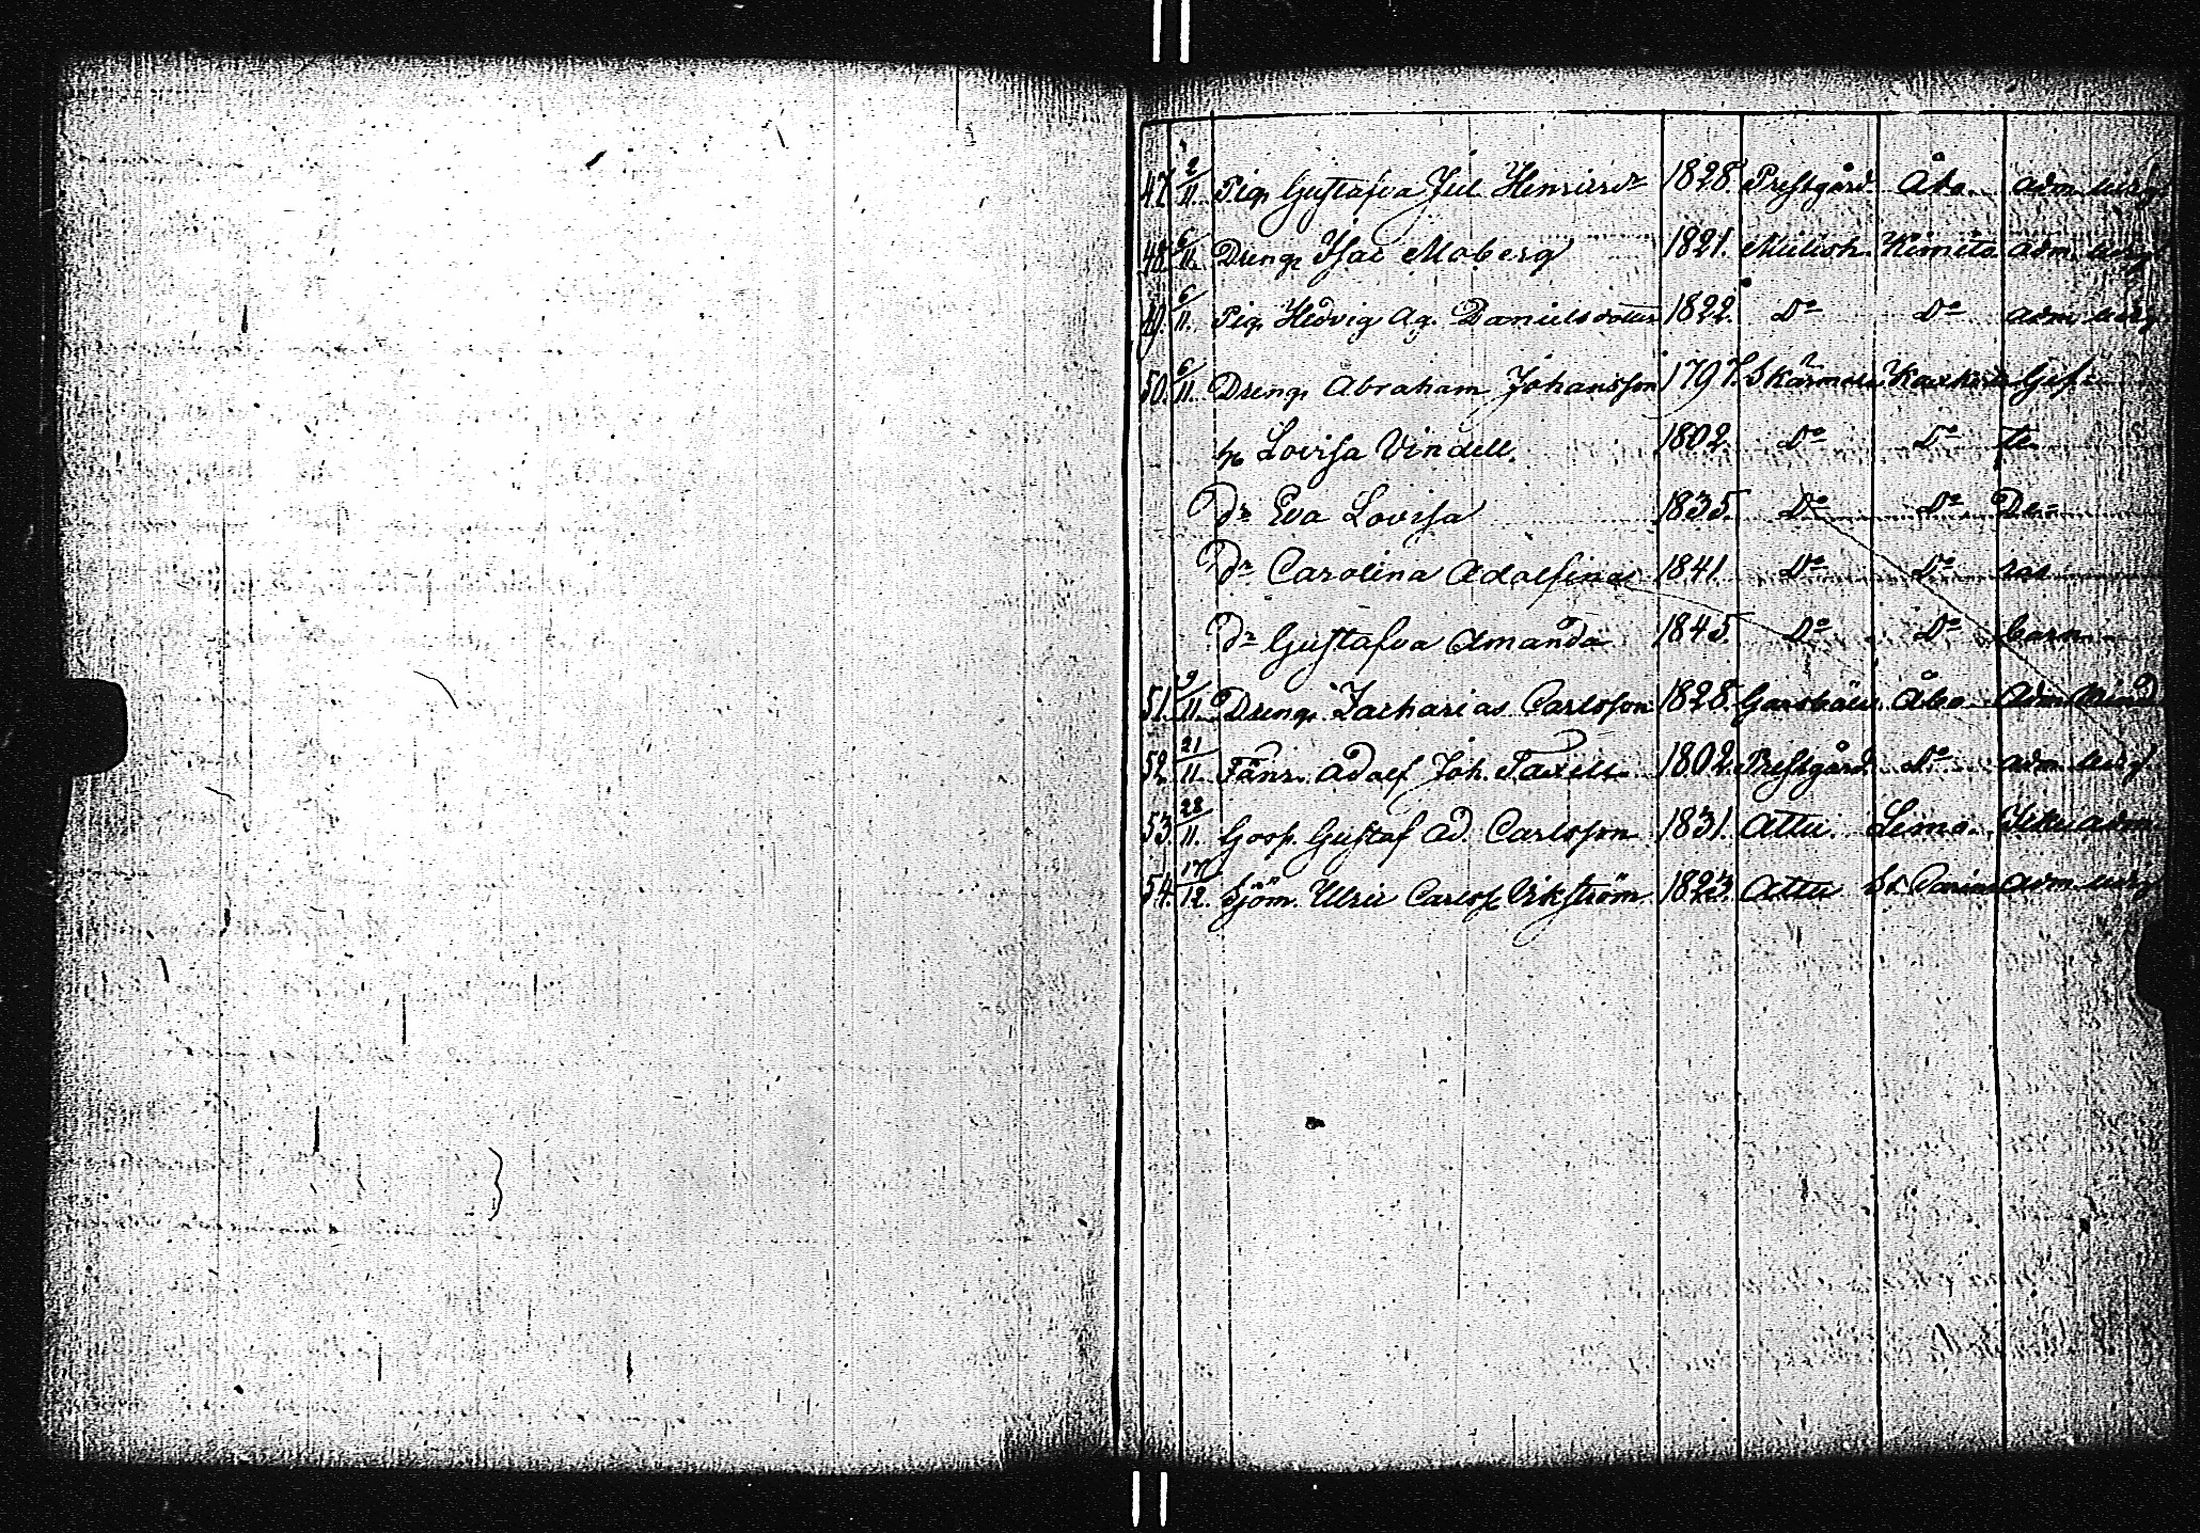 47. 2/11. Pig. Gustafva Jul. Henricsdr 1828. Prestgård Åbo adm. berg.
48. 6/11. Dreng. Isac Moberg 1821. Kimito adm. berg.
49. 6/11. Pig. Hedvig Ag. Danielsdotter 1822. Do Do adm. berg.
50. 6/11. Dreng. Abraham Johansson 1797. Gift
h. Lovisa Vindell. 1802. Do Do te
Dr Eva Lovisa 1835. Do Do De=
Dr Carolina Adolfina 1841. Do Do ras
Dr Gustafva Amanda 1845. Do Do barn
51. 9/11. Dreng. Zacharias Carlsson 1828. Åbo Adm.
52. 21/11. Fänr. Adolf Joh. Taxell 1802. Prestgård Do adm. berg.
53. 28/11. Gossn. Gustaf Ad. Carlsson 1831. Attu Lemo Icke adm.
54. 17/12. Sjöm. Ulric Carlss. Vikström 1823. Attu adm. berg.